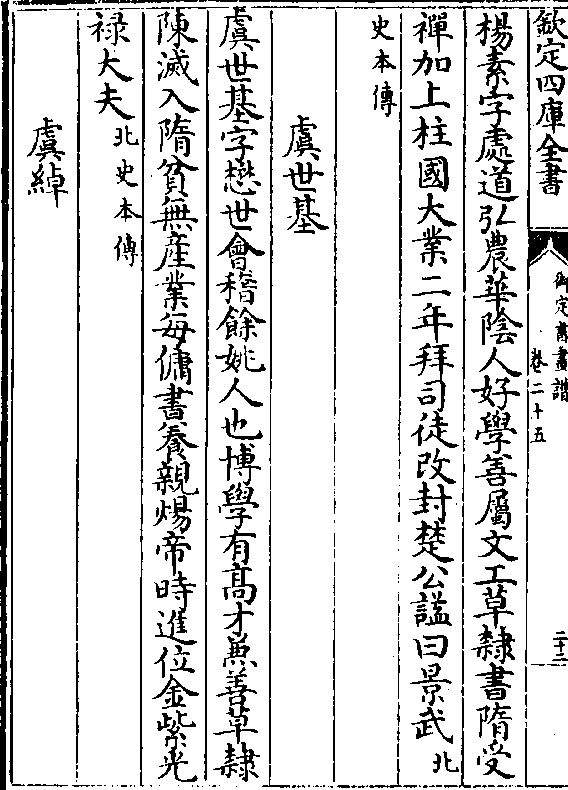 欽定四庫全書
御定書畫譜
卷二十五
二十三
楊素字處道弘農華陰人好學善屬文工草隸書隋受
禪加上柱國大業二年拜司徒改封楚公諡曰景武北
史本傳
虞世基
虞世基字懋世會稽餘姚人也博學有高才兼善草隸
陳滅入隋貧無産業每傭書養親煬帝時進位金紫光
禄大夫北史本傳
虞綽